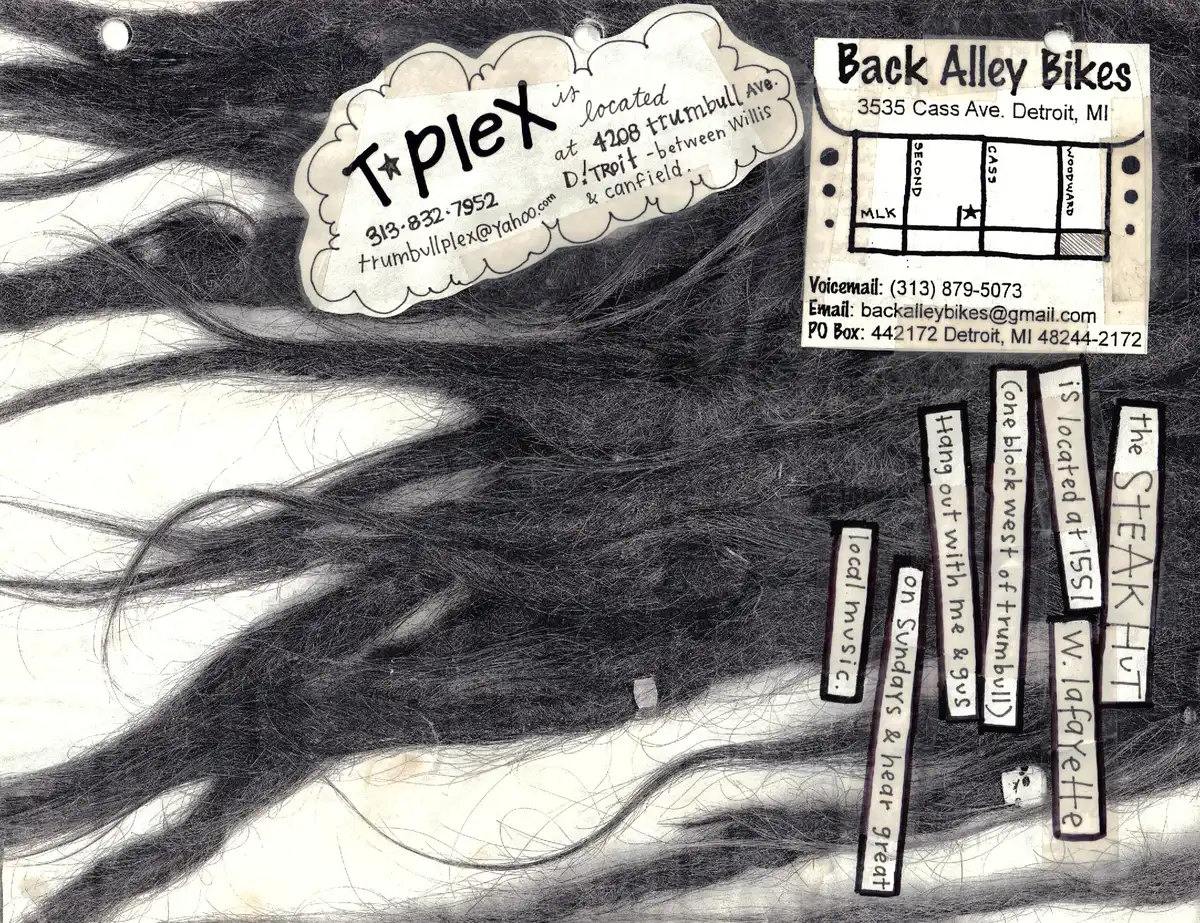 T★pleX is located
at 4208 trumbull Ave.
D!TRoit - between Willis
& canfield.
313-832-7952
trumbullplex@yahoo.com
Back Alley Bikes
3535 Cass Ave. Detroit, MI
SECOND
CASS
WOODWARD
MLK
Voicemail: (313) 879-5073
Email: backalleybikes@gmail.com
PO Box: 442172 Detroit, MI 48244-2172
the STEAK HuT
is located at 1551
W. lafayette
(one block west of trumbull)
Hang out with me & gus
on Sundays & hear great
local music.